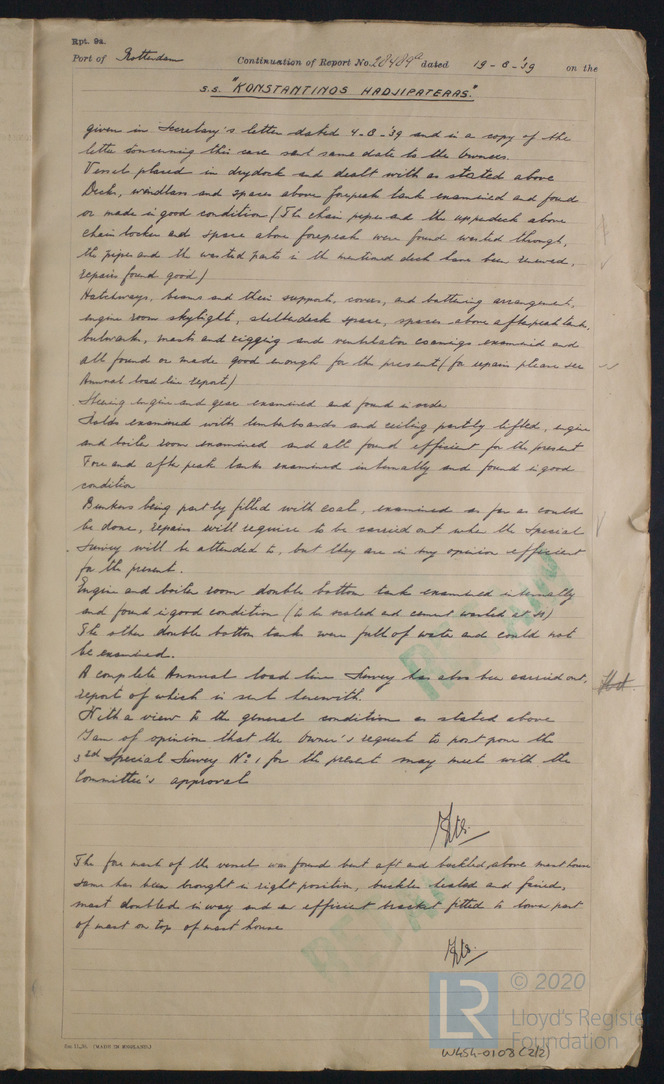 Rpt. 9a.
Port of Rotterdam Continuation of Report No. 28484a dated 19-8-'39 on the
S.S. "KONSTANTINOS HADJIPATERAS."
given in Secretary's letter dated 4-8-'39 and in a copy of the
letter concerning this case sent same date to the Owners.
Vessel placed in drydock and dealt with as stated above
Decks, windlass and spaces above forepeak tank examined and found
or made in good condition (The chain pipes and the upperdeck above
chain locker and space above forepeak were found wasted through,
the pipes and the wasted parts in the mentioned deck have been renewed,
repairs found good)
Hatchways, beams and their supports, covers, and battening arrangement,
engine room skylight, shelterdeck space, spaces above afterpeak tank,
bulwarks, masts and rigging and ventilator coamings examined and
all found or made good enough for the present (for repairs please see
Annual load line report)
Steering engine and gear examined and found in order
Holds examined with limberboards and ceiling partly lifted, engine
and boiler room examined and all found efficient for the present
Fore and after peak tanks examined internally and found in good
condition
Bunkers being partly filled with coal, examined as far as could
be done, repairs will require to be carried out when the Special
Survey will be attended to, but they are in my opinion efficient
for the present.
Engine and boiler room double bottom tank examined internally
and found in good condition (to be scaled and cement washed at SS)
The other double bottom tanks were full of water and could not
be examined.
A complete Annual load line Survey has also been carried out,
report of which is sent herewith.
With a view to the general condition as stated above
I am of opinion that the Owner's request to postpone the
3rd Special Survey No. 1 for the present may meet with the
Committee's approval
The fore mast of the vessel was found bent aft and buckled, above mast house
same has been brought in right position, buckles heated and faired,
mast doubled in way and an efficient bracket fitted to lower part
of mast on top of mast house
(MADE IN ENGLAND.)
© 2020
LR
Lloyd's Register
Foundation
W454-0108 (2/2)